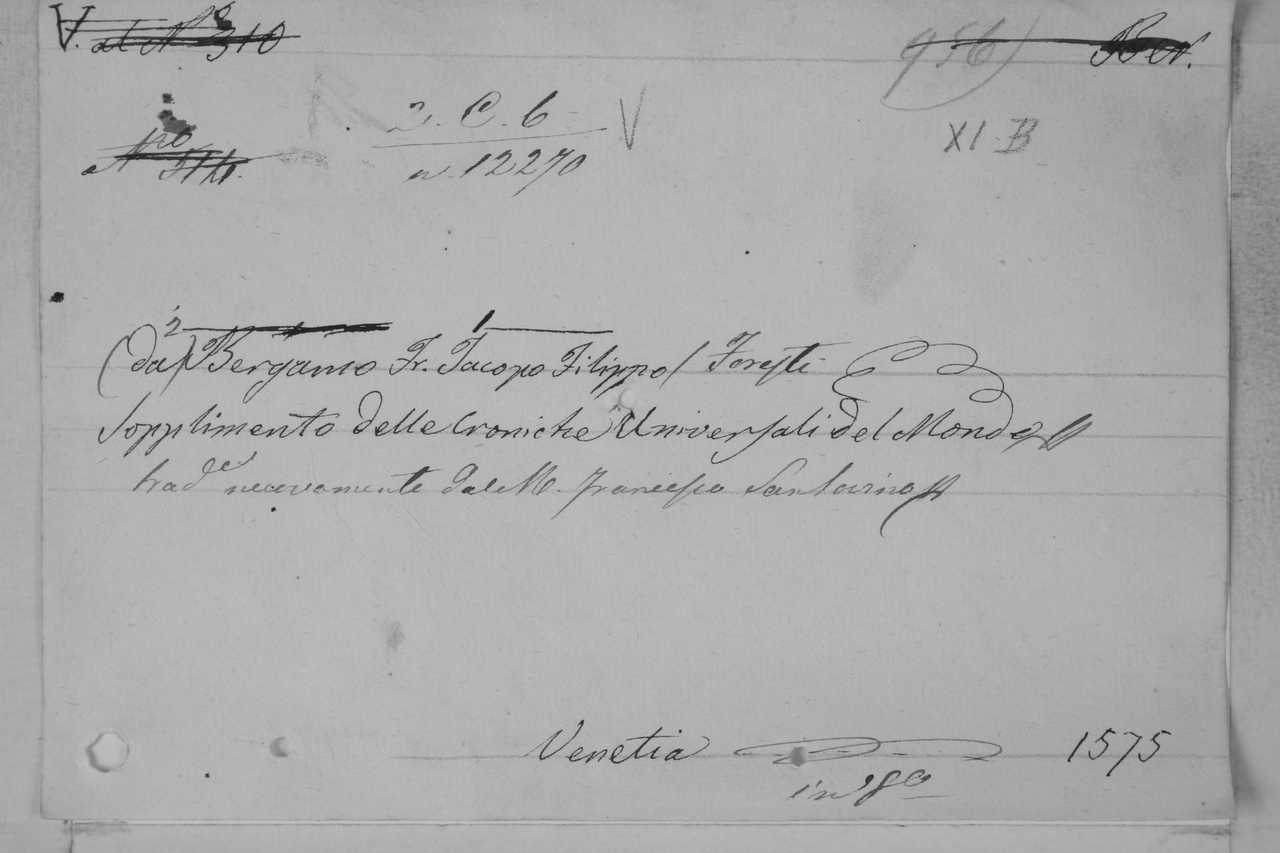 V. al Nº 310
956) Ber.
2. C. 6 V
XI B
Nro 314.
n. 12270
2 1
(da) Bergamo Fr. Jacopo Filippo / Foresti
Sopplimento delle Croniche Universali del Mondo
trad.e nuovamente da M. Francesco Sansovino
Venetia 1575
in 8º